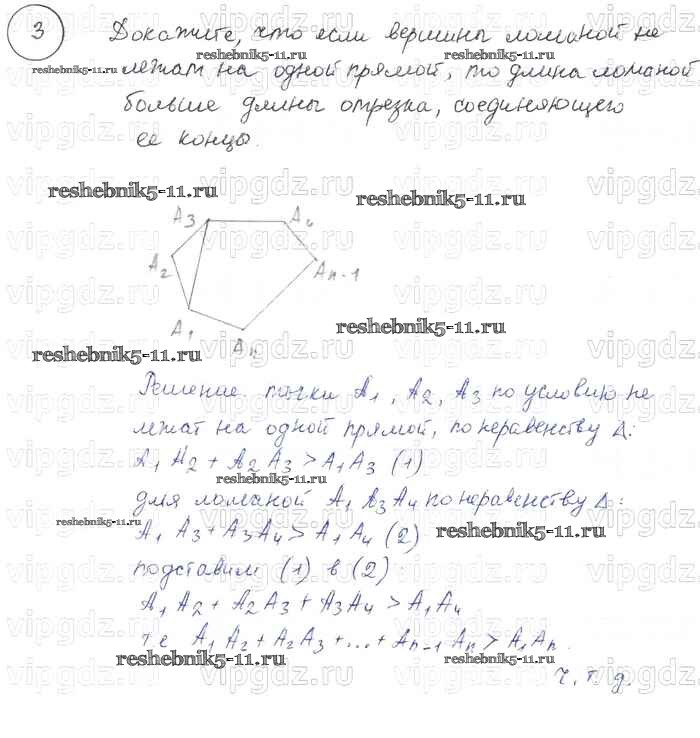 3 Докажите, что если вершины ломаной не
лежат на одной прямой, то длина ломаной
больше длины отрезка, соединяющего
ее концы.
reshebnik5-11.ru
reshebnik5-11.ru
vipgdz.ru
reshebnik5-11.ru
reshebnik5-11.ru
A3 A4
A2 An-1
A1 An
reshebnik5-11.ru
reshebnik5-11.ru
Решение. точки A1, A2, A3 по условию не
лежат на одной прямой, по неравенству Δ:
A1 A2 + A2 A3 > A1 A3 (1)
reshebnik5-11.ru
для ломаной A1 A3 A4 по неравенству Δ:
reshebnik5-11.ru
A1 A3 + A3 A4 > A1 A4 (2)
reshebnik5-11.ru
подставим (1) в (2)
A1 A2 + A2 A3 + A3 A4 > A1 A4
т.е A1 A2 + A2 A3 + ... + An-1 An > A1 An.
reshebnik5-11.ru
reshebnik5-11.ru
ч. т. д.